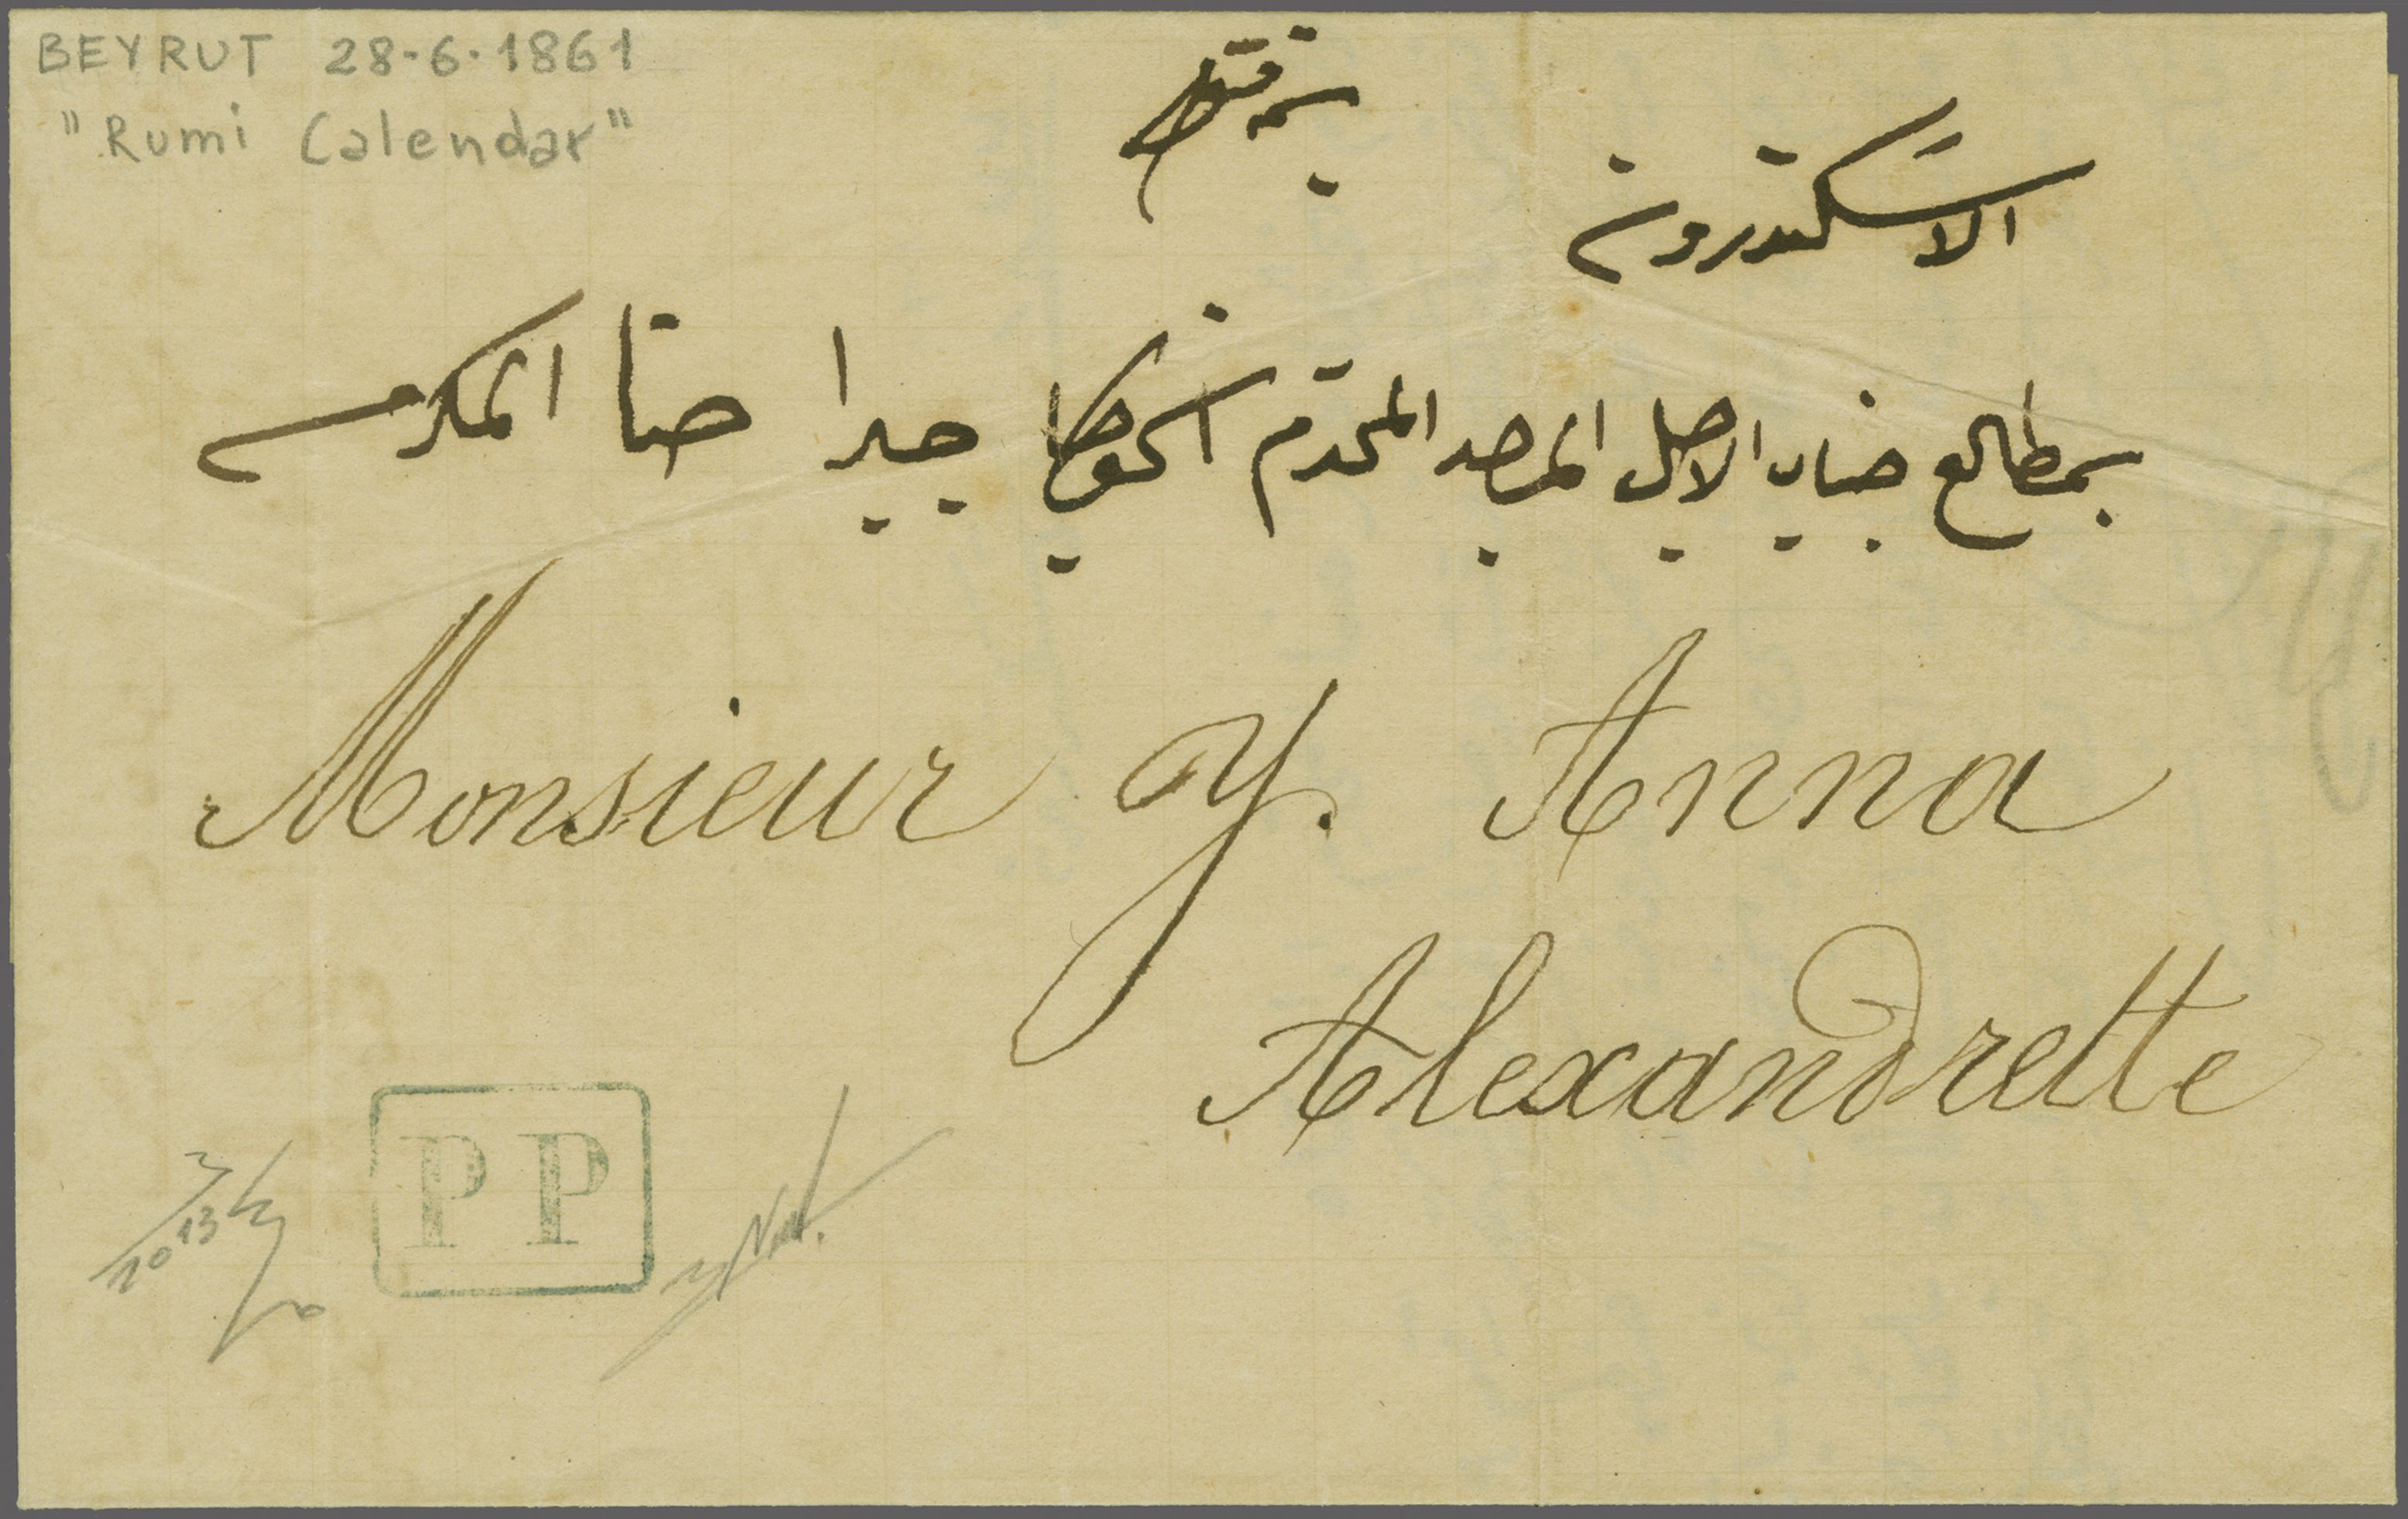 BEYRUT 28-6-1861
"Rumi Calendar"
الاسكندرونه
بمطالع جناب الاجل الامجد المحترم الخواجا جبرا حنا المكرم
Monsieur Y. Anna
Alexandrette
PP